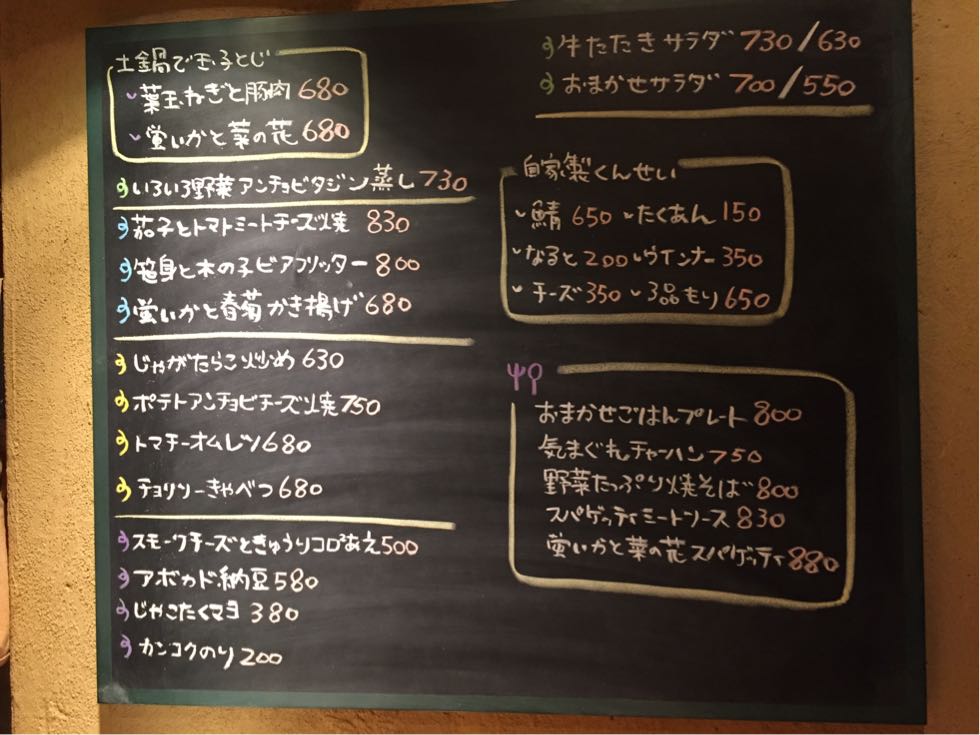 土鍋でき、子とじ
葉玉ねぎと豚肉 680
蛍いかと菜の花 680
いろいろ野菜アンチョビタジン蒸し 730
茄子とトマトミートチーズ焼 830
笹身と木の子ビアフリッター 800
蛍いかと春菊かき揚げ 680
じゃがたらこ炒め 630
ポテトアンチョビチーズ焼 750
トマチーオムレツ 680
チョリソーきゃべつ 680
スモークチーズときゅうりコロコロあえ 500
アボカド納豆 580
じゃこたくマヨ 380
カンコクのり 200
牛たたきサラダ 730/630
おまかせサラダ 700/550
自家製くんせい
鯖 650 たくあん 150
なると 200 ウインナー 350
チーズ 350 3品もり 650
おまかせごはんプレート 800
気まぐれチャーハン 750
野菜たっぷり焼そば 800
スパゲッティミートソース 830
蛍いかと菜の花スパゲッティ 880